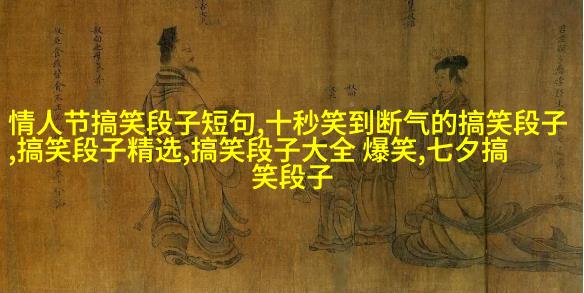 情人节搞笑段子短句,十秒笑到断气的搞笑段子
,搞笑段子精选,搞笑段子大全 爆笑,七夕搞
笑段子